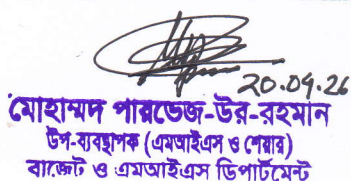 20.04.26
মোহাম্মদ পারভেজ-উর-রহমান
উপ-ব্যবস্থাপক (এমআইএস ও শেয়ার)
বাজেট ও এমআইএস ডিপার্টমেন্ট